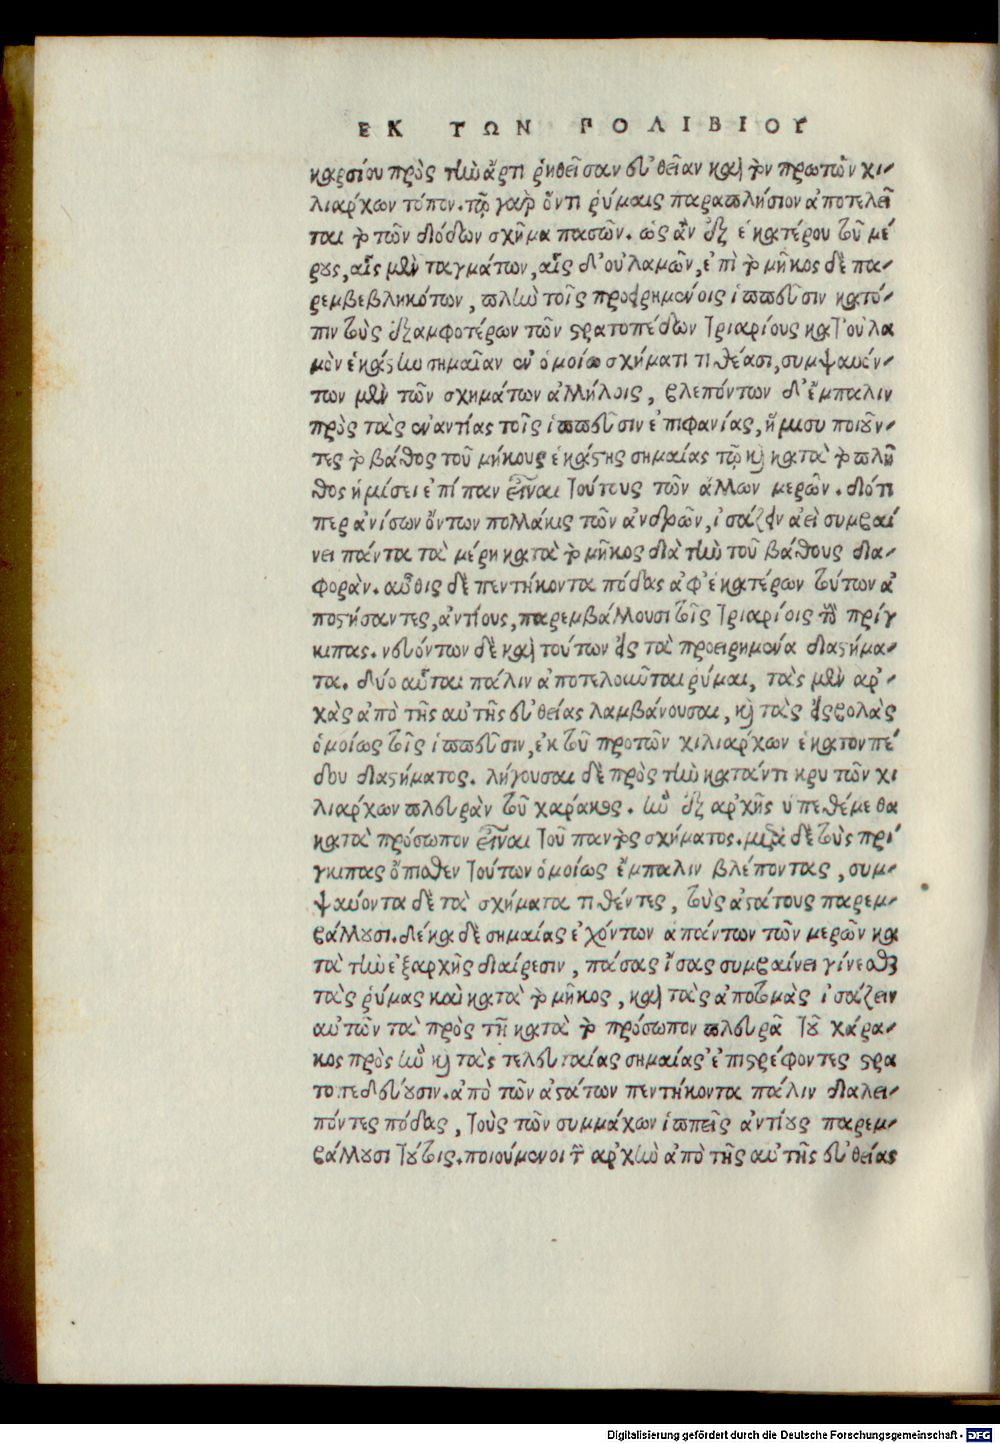 ΕΚ ΤΩΝ ΠΟΛΙΒΙΟΥ
καρσίου πρὸς τὴν ἄρτι ῥηθεῖσαν εὐθεῖαν καὶ τὸν πρὸ τῶν χι-
λιάρχων τόπον. τῷ γὰρ ὄντι ῥύμαις παραπλήσιον ἀποτελεῖ
ται τὸ τῶν διόδων σχῆμα πασῶν. ὡς ἂν ἐξ ἑκατέρου τοῦ μέ
ρους, αἷς μὲν ταγμάτων, αἷς δ' οὐλαμῶν, ἐπὶ τὸ μῆκος δὲ πα-
ρεμβεβληκότων, πλὴν τοῖς προειρημένοις ἱππεῦσιν κατό-
πιν τοὺς ἐξ ἀμφοτέρων τῶν στρατοπέδων τριαρίους κατ' οὐλα
μὸν ἑκάστην σημαῖαν ἐν ὁμοίῳ σχήματι τιθέασι, συμψαυόν-
των μὲν τῶν σχημάτων ἀλλήλοις, βλεπόντων δ' ἔμπαλιν
πρὸς τὰς ἐναντίας τοῖς ἱππεῦσιν ἐπιφανίας, ἥμισυ ποιοῦν-
τες τὸ βάθος τοῦ μήκους ἑκάστης σημαίας τῷ καὶ κατὰ τὸ πλῆ
θος ἡμίσει ἐπίπαν εἶναι τούτους τῶν ἄλλων μερῶν. διότι
περ ἀνίσων ὄντων πολλάκις τῶν ἀνδρῶν, ἰσάζειν ἀεὶ συμβαί
νει πάντα τὰ μέρη κατὰ τὸ μῆκος διὰ τὴν τοῦ βάθους δια-
φοράν. αὖθις δὲ πεντήκοντα πόδας ἀφ' ἑκατέρων τούτων ἀ
ποστήσαντες, ἀντίους, παρεμβάλλουσι τοῖς τριαρίοις τοὺς πρίγ
κιπας. νευόντων δὲ καὶ τούτων εἰς τὰ προειρημένα διαστήμα-
τα. δύο αὗται πάλιν ἀποτελοῦνται ῥύμαι, τὰς μὲν ἀρ-
χὰς ἀπὸ τῆς αὐτῆς εὐθείας λαμβάνουσαι, καὶ τὰς εἰσβολὰς
ὁμοίως τοῖς ἱππεῦσιν, ἐκ τοῦ πρὸ τῶν χιλιάρχων ἑκατονπέ
δου διαστήματος. λήγουσαι δὲ πρὸς τὴν κατάντικρυ τῶν χι
λιάρχων πλευρὰν τοῦ χάρακος. ἣν ἐξ ἀρχῆς ὑπεθέμεθα
κατὰ πρόσωπον εἶναι τοῦ παντὸς σχήματος. μετὰ δὲ τοὺς πρί
γκιπας ὄπισθεν τούτων ὁμοίως ἔμπαλιν βλέποντας, συμ-
ψαύοντα δὲ τὰ σχήματα τιθέντες, τοὺς ἀστάτους παρεμ-
βάλλουσι. δέκα δὲ σημαίας ἐχόντων ἁπάντων τῶν μερῶν κα
τὰ τὴν ἐξαρχῆς διαίρεσιν, πάσας ἴσας συμβαίνει γίνεσθαι
τὰς ῥύμας καὶ κατὰ τὸ μῆκος, καὶ τὰς ἀποτομὰς ἰσάζειν
αὐτῶν τὰ πρὸς τῇ κατὰ τὸ πρόσωπον πλευρᾷ τοῦ χάρα-
κος πρὸς ἣν καὶ τὰς τελευταίας σημαίας ἐπιστρέφοντες στρα
τοπεδεύουσιν. ἀπὸ τῶν ἀστάτων πεντήκοντα πάλιν διαλεί-
πόντες πόδας, τοὺς τῶν συμμάχων ἱππεῖς ἀντίους παρεμ-
βάλλουσι τούτοις. ποιούμενοι τὴν ἀρχὴν ἀπὸ τῆς αὐτῆς εὐθείας
Digitalisierung gefördert durch die Deutsche Forschungsgemeinschaft - DFG